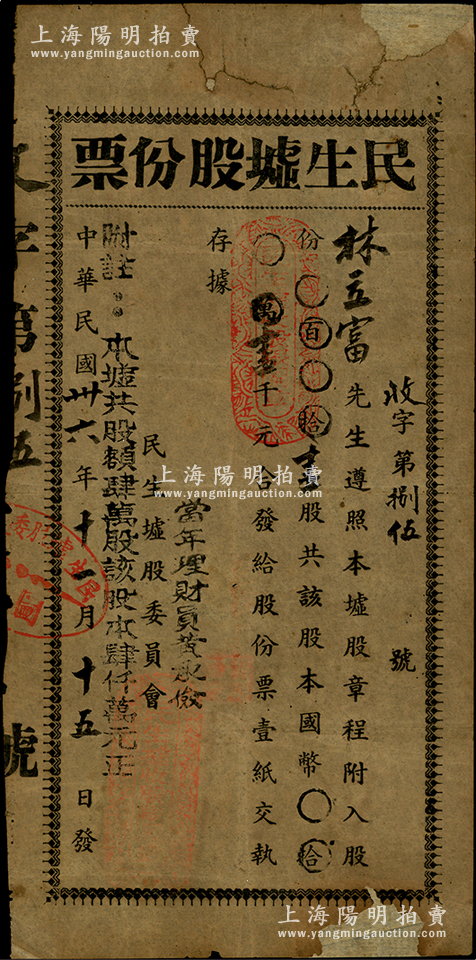 上海陽明拍賣
www.yangmingauction.com
民生墟股份票
收字第捌伍號
林立富先生遵照本墟股章程附入股
份〇百〇拾壹股共該股本國幣〇拾
〇萬壹千元合發給股份票壹紙交執
存據
當年理財員黃永儉
民生墟股委員會
附註：本墟共股額肆萬股該股本肆仟萬元正
中華民國卅六年十一月十五日發
字第捌伍
號
上海陽明拍賣
www.yangmingauction.com
上海陽明拍賣
www.yangmingauction.com